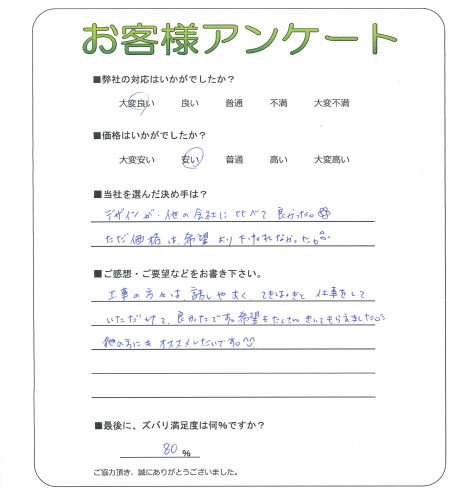 お客様アンケート
■弊社の対応はいかがでしたか？
大変良い 良い 普通 不満 大変不満
■価格はいかがでしたか？
大変安い 安い 普通 高い 大変高い
■当社を選んだ決め手は？
デザインが、他の会社に比べて良かった。
ただ価格は、希望より
■ご感想・ご要望などをお書き下さい。
工事の方々は、話しやすく、てきぱきと仕事をして
いただけて、良かったです。希望もたくさんきいてもらえました。
他の方にもオススメしたいです。
■最後に、ズバリ満足度は何%ですか？
80 %
ご協力頂き、誠にありがとうございました。